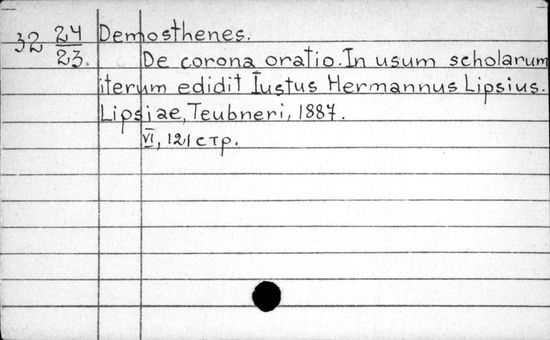 32 24/23. Demosthenes.
De corona oratio. In usum scholarum
iterum edidit Iustus Hermannus Lipsius.
Lipsiae, Teubneri, 1887.
VI, 121 стр.